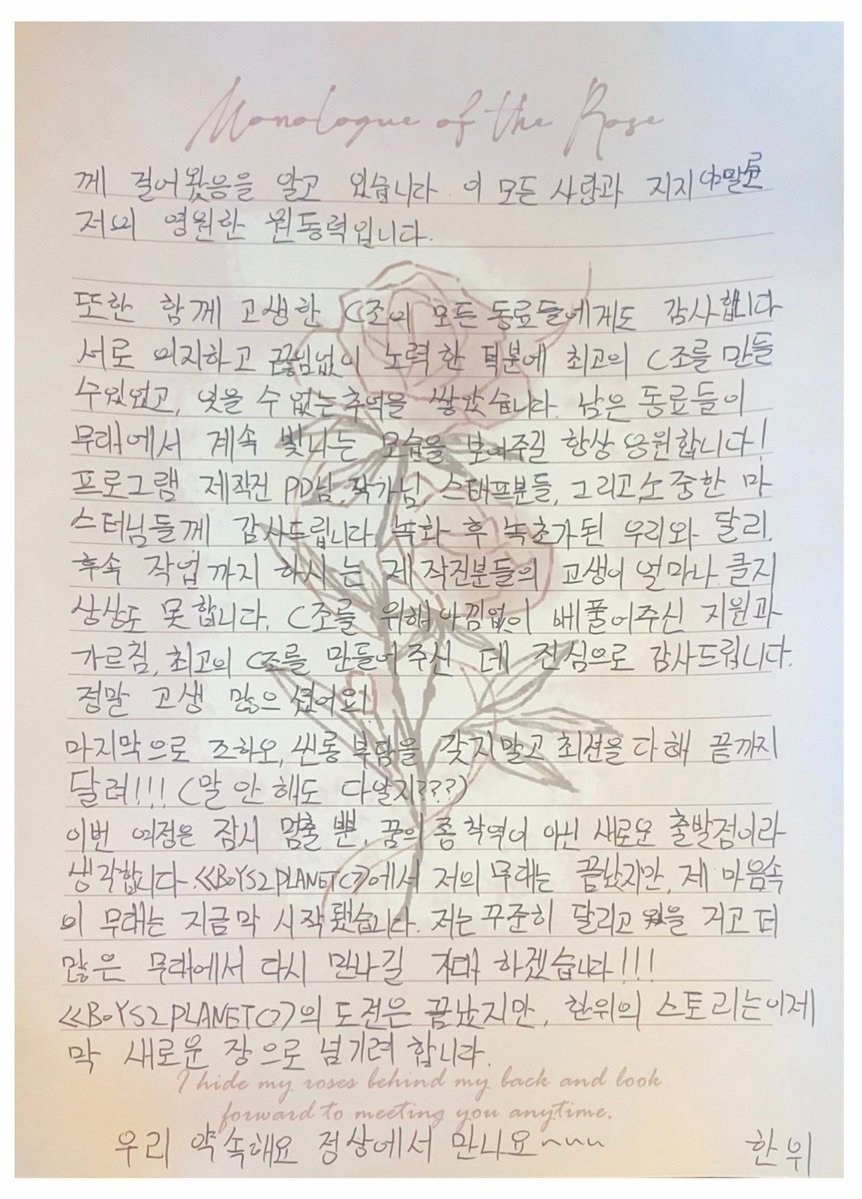 Monologue of the Rose
께 걸어왔음을 알고 있습니다 이 모든 사람과 지지
저의 영원한 원동력입니다.
또한 함께 고생한 C조의 모든 동료들에게도 감사합니다
서로 의지하고 끊임없이 노력한 덕분에 최고의 C조를 만들
수있었고, 잊을 수 없는 추억을 쌓았습니다. 남은 동료들이
무대에서 계속 빛나는 모습을 보여주길 항상 응원합니다!
프로그램 제작진 PD님, 작가님, 스태프분들, 그리고, 소중한 마
스터님들께 감사드립니다. 녹화 후 녹초가 된 우리와 달리,
후속 작업까지 하시는 제작진분들의 고생이 얼마나 클지
상상도 못합니다. C조를 위해 아낌없이 베풀어주신 지원과
가르침, 최고의 C조를 만들어주신 데 진심으로 감사드립니다.
정말 고생 많으셨어요!
마지막으로 즈하오, 씬롱 부담을 갖지말고 최선을 다해 끝까지
달려!!! (말 안 해도 다알지???)
이번 여정은 잠시 멈출 뿐, 꿈의 종착역이 아닌 새로운 출발점이라
생각합니다. 《BOYS2PLANETC》에서 저의 무대는 끝났지만, 제 마음속
의 무대는 지금막 시작됐습니다. 저는 꾸준히 달리고 거고 더
많은 무대에서 다시 만나길 기대 하겠습니다!!!
《BOYS2PLANETC》의 도전은 끝났지만, 한위의 스토리는 이제
막 새로운 장으로 넘기려 합니다.
I hide my roses behind my back and look
forward to meeting you anytime.
우리 약속해요 정상에서 만나요~~~ 한위